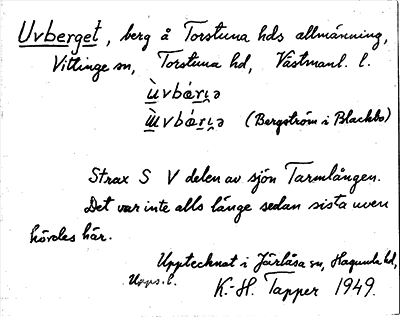 Uvberget, berg å Torstuna hds allmänning,
Vittinge sn, Torstuna hd, Västmanl. l.
ù̱vbáṟi̱ə
ɯ̱̀vbáṟi̱ə (Bergström i Blackbo)
Strax S V delen av sjön Tarmlången.
Det var inte alls länge sedan sista uven
hördes här.
Upptecknat i Järlåsa sn, Hagunda hd,
Upps. l.
K.-H. Tapper 1949.